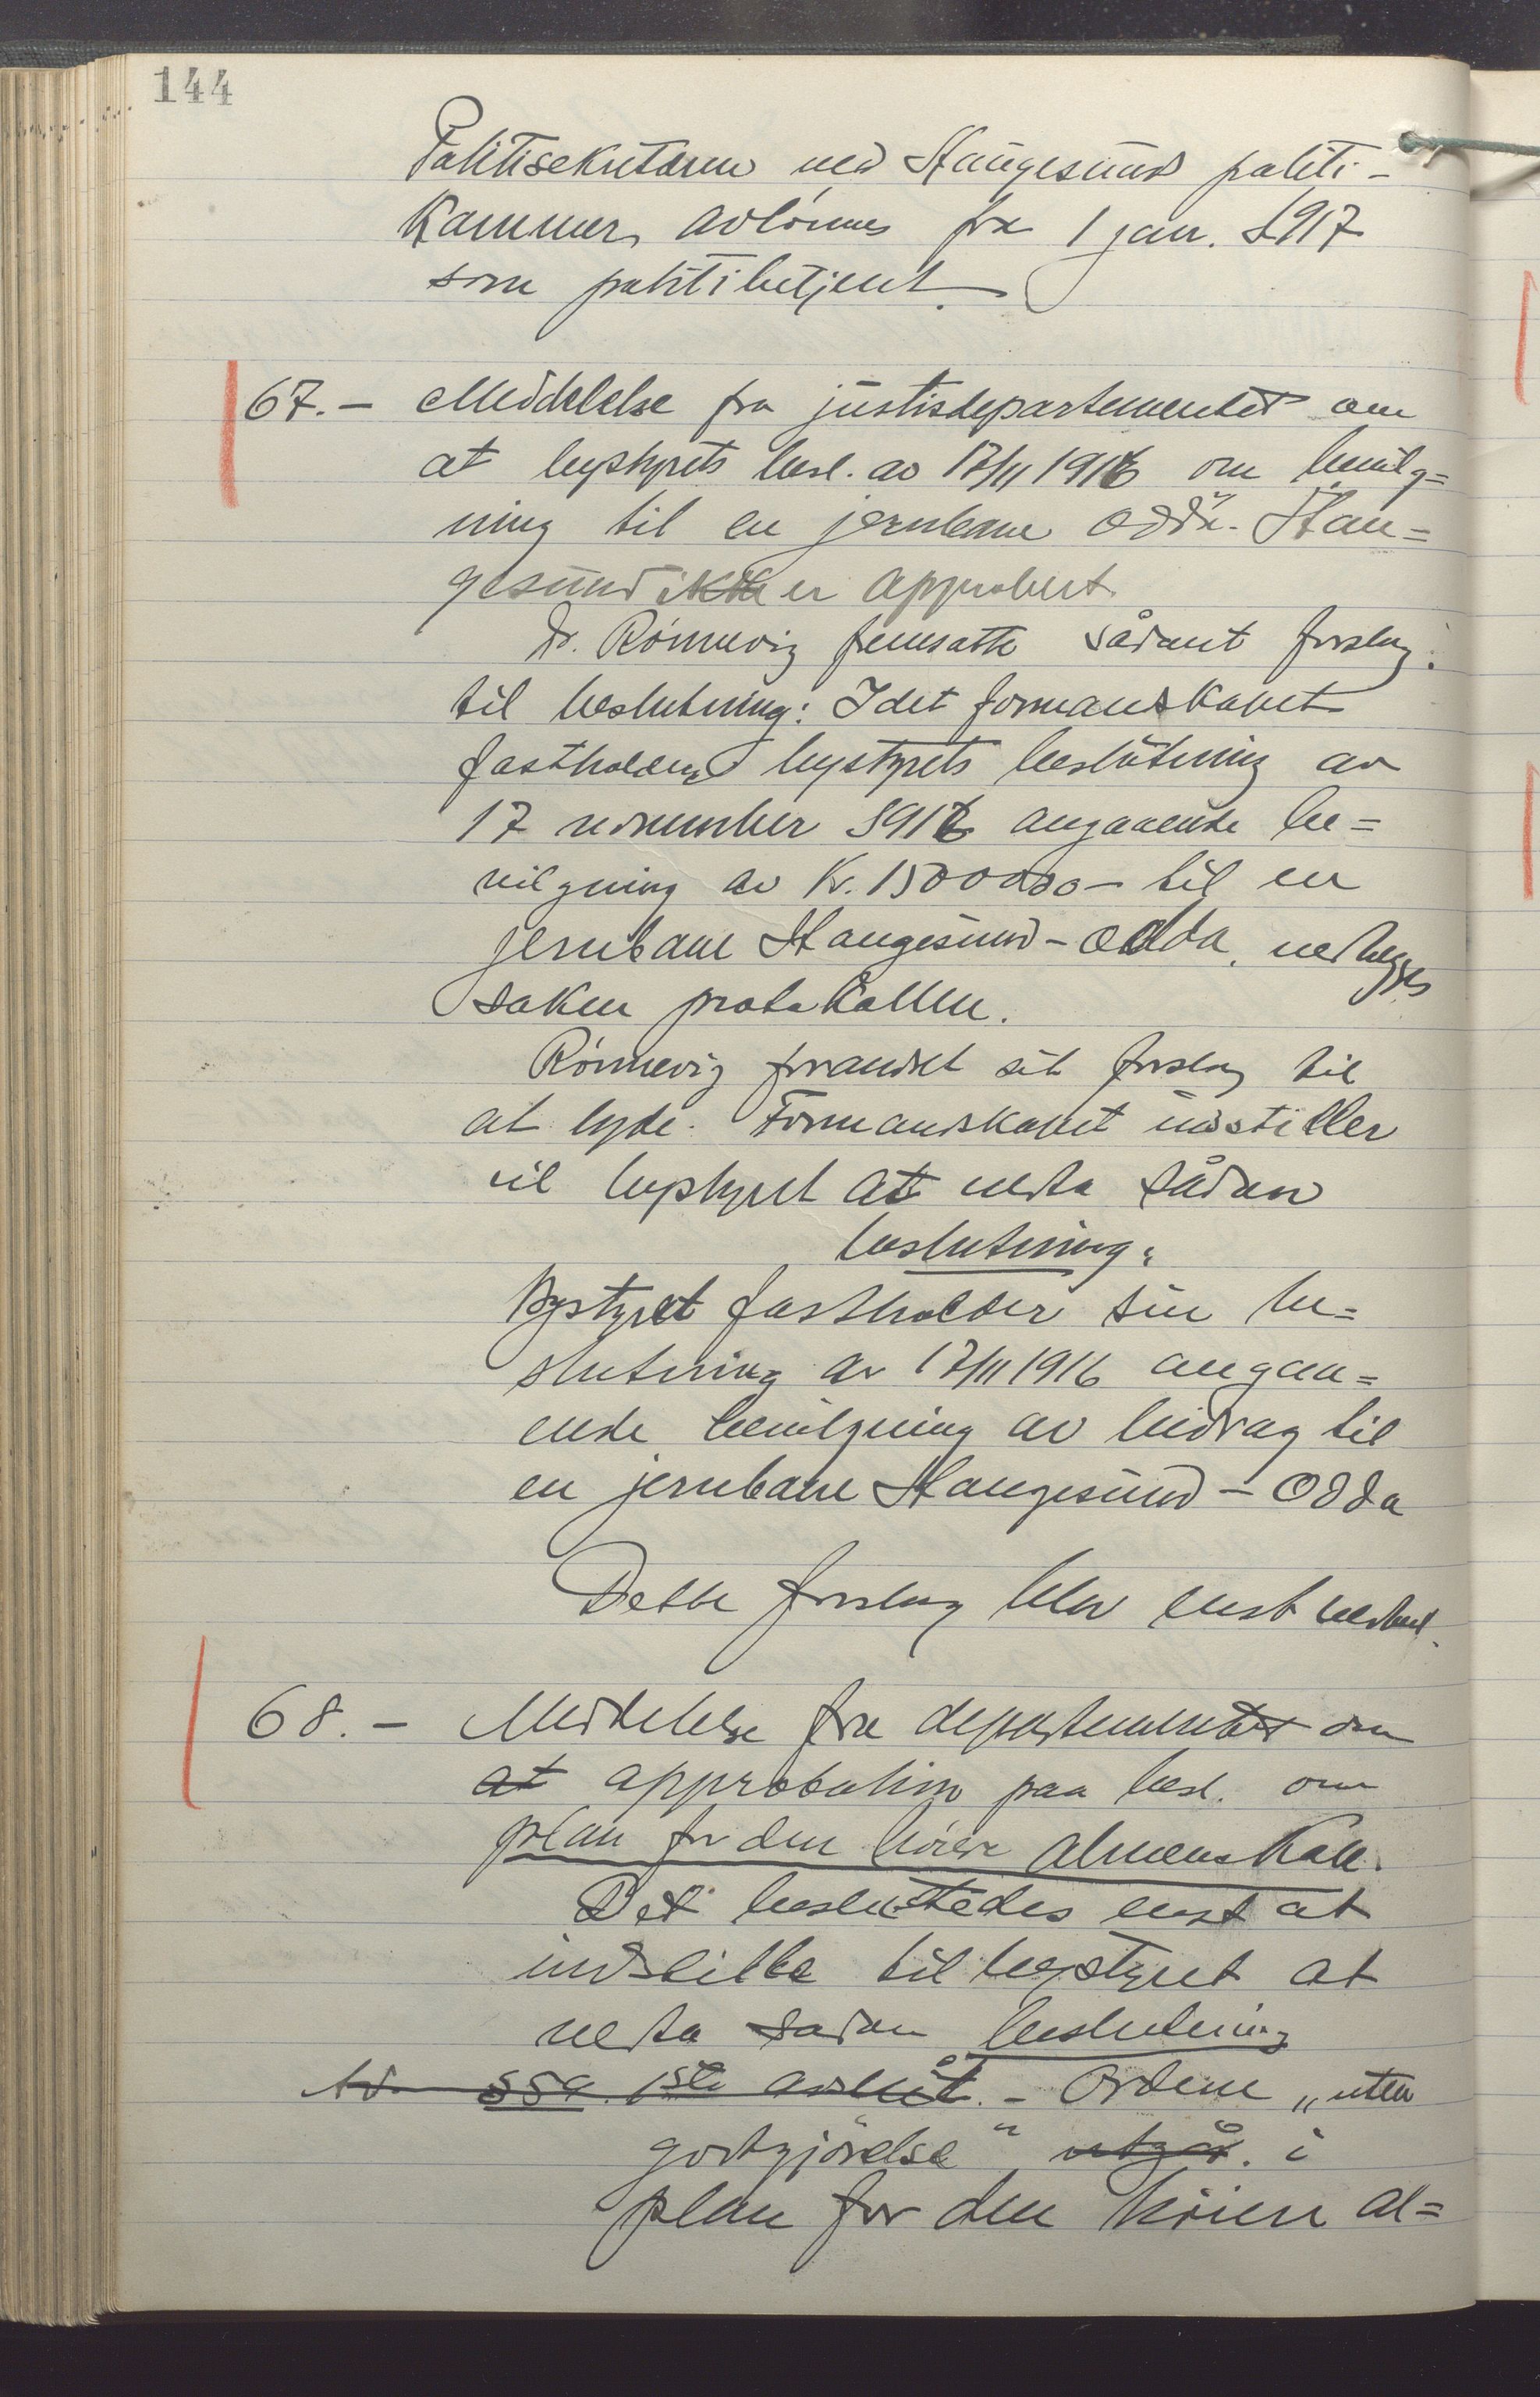 144
Politisekretæren ved Haugesunds politi-
kammer, avlønnes fra 1 jan. 1917
som politibetjent.
67. - Meddelelse fra justisdepartementet om
at bystyrets besl. av 17/11 1916 om bevilg=
ning til en jernbane Odda - Hau=
gesund ikke er approbert.
Dr. Rønnevig fremsatte sådant forslag
til beslutning: Idet formandskapet
fastholder bystyrets beslutning av
17 november 1916 angaaende be=
vilgning av Kr. 1500000 - til en
jernbane Haugesund - Odda, nedlegges
saken protokollen.
Rønnevig forandret sit forslag til
at lyde: Formandskapet indstiller
til bystyret at vedta sådan
beslutning:
Bystyret fastholder sin be=
slutning av 17/11 1916 angaa=
ende bevilgning av bidrag til
en jernbane Haugesund - Odda
Dette forslag blev enst. vedtat.
68. - Meddelelse fra departementet om
at approbation paa besl. om
plan for den høiere almenskole.
Det besluttedes enst. at
indstille til bystyret at
vedta sådan beslutning
Ad § 59. 1ste avsnit. - Ordene „uten
godtgjørelse" utgår. i
plan for den høiere al=